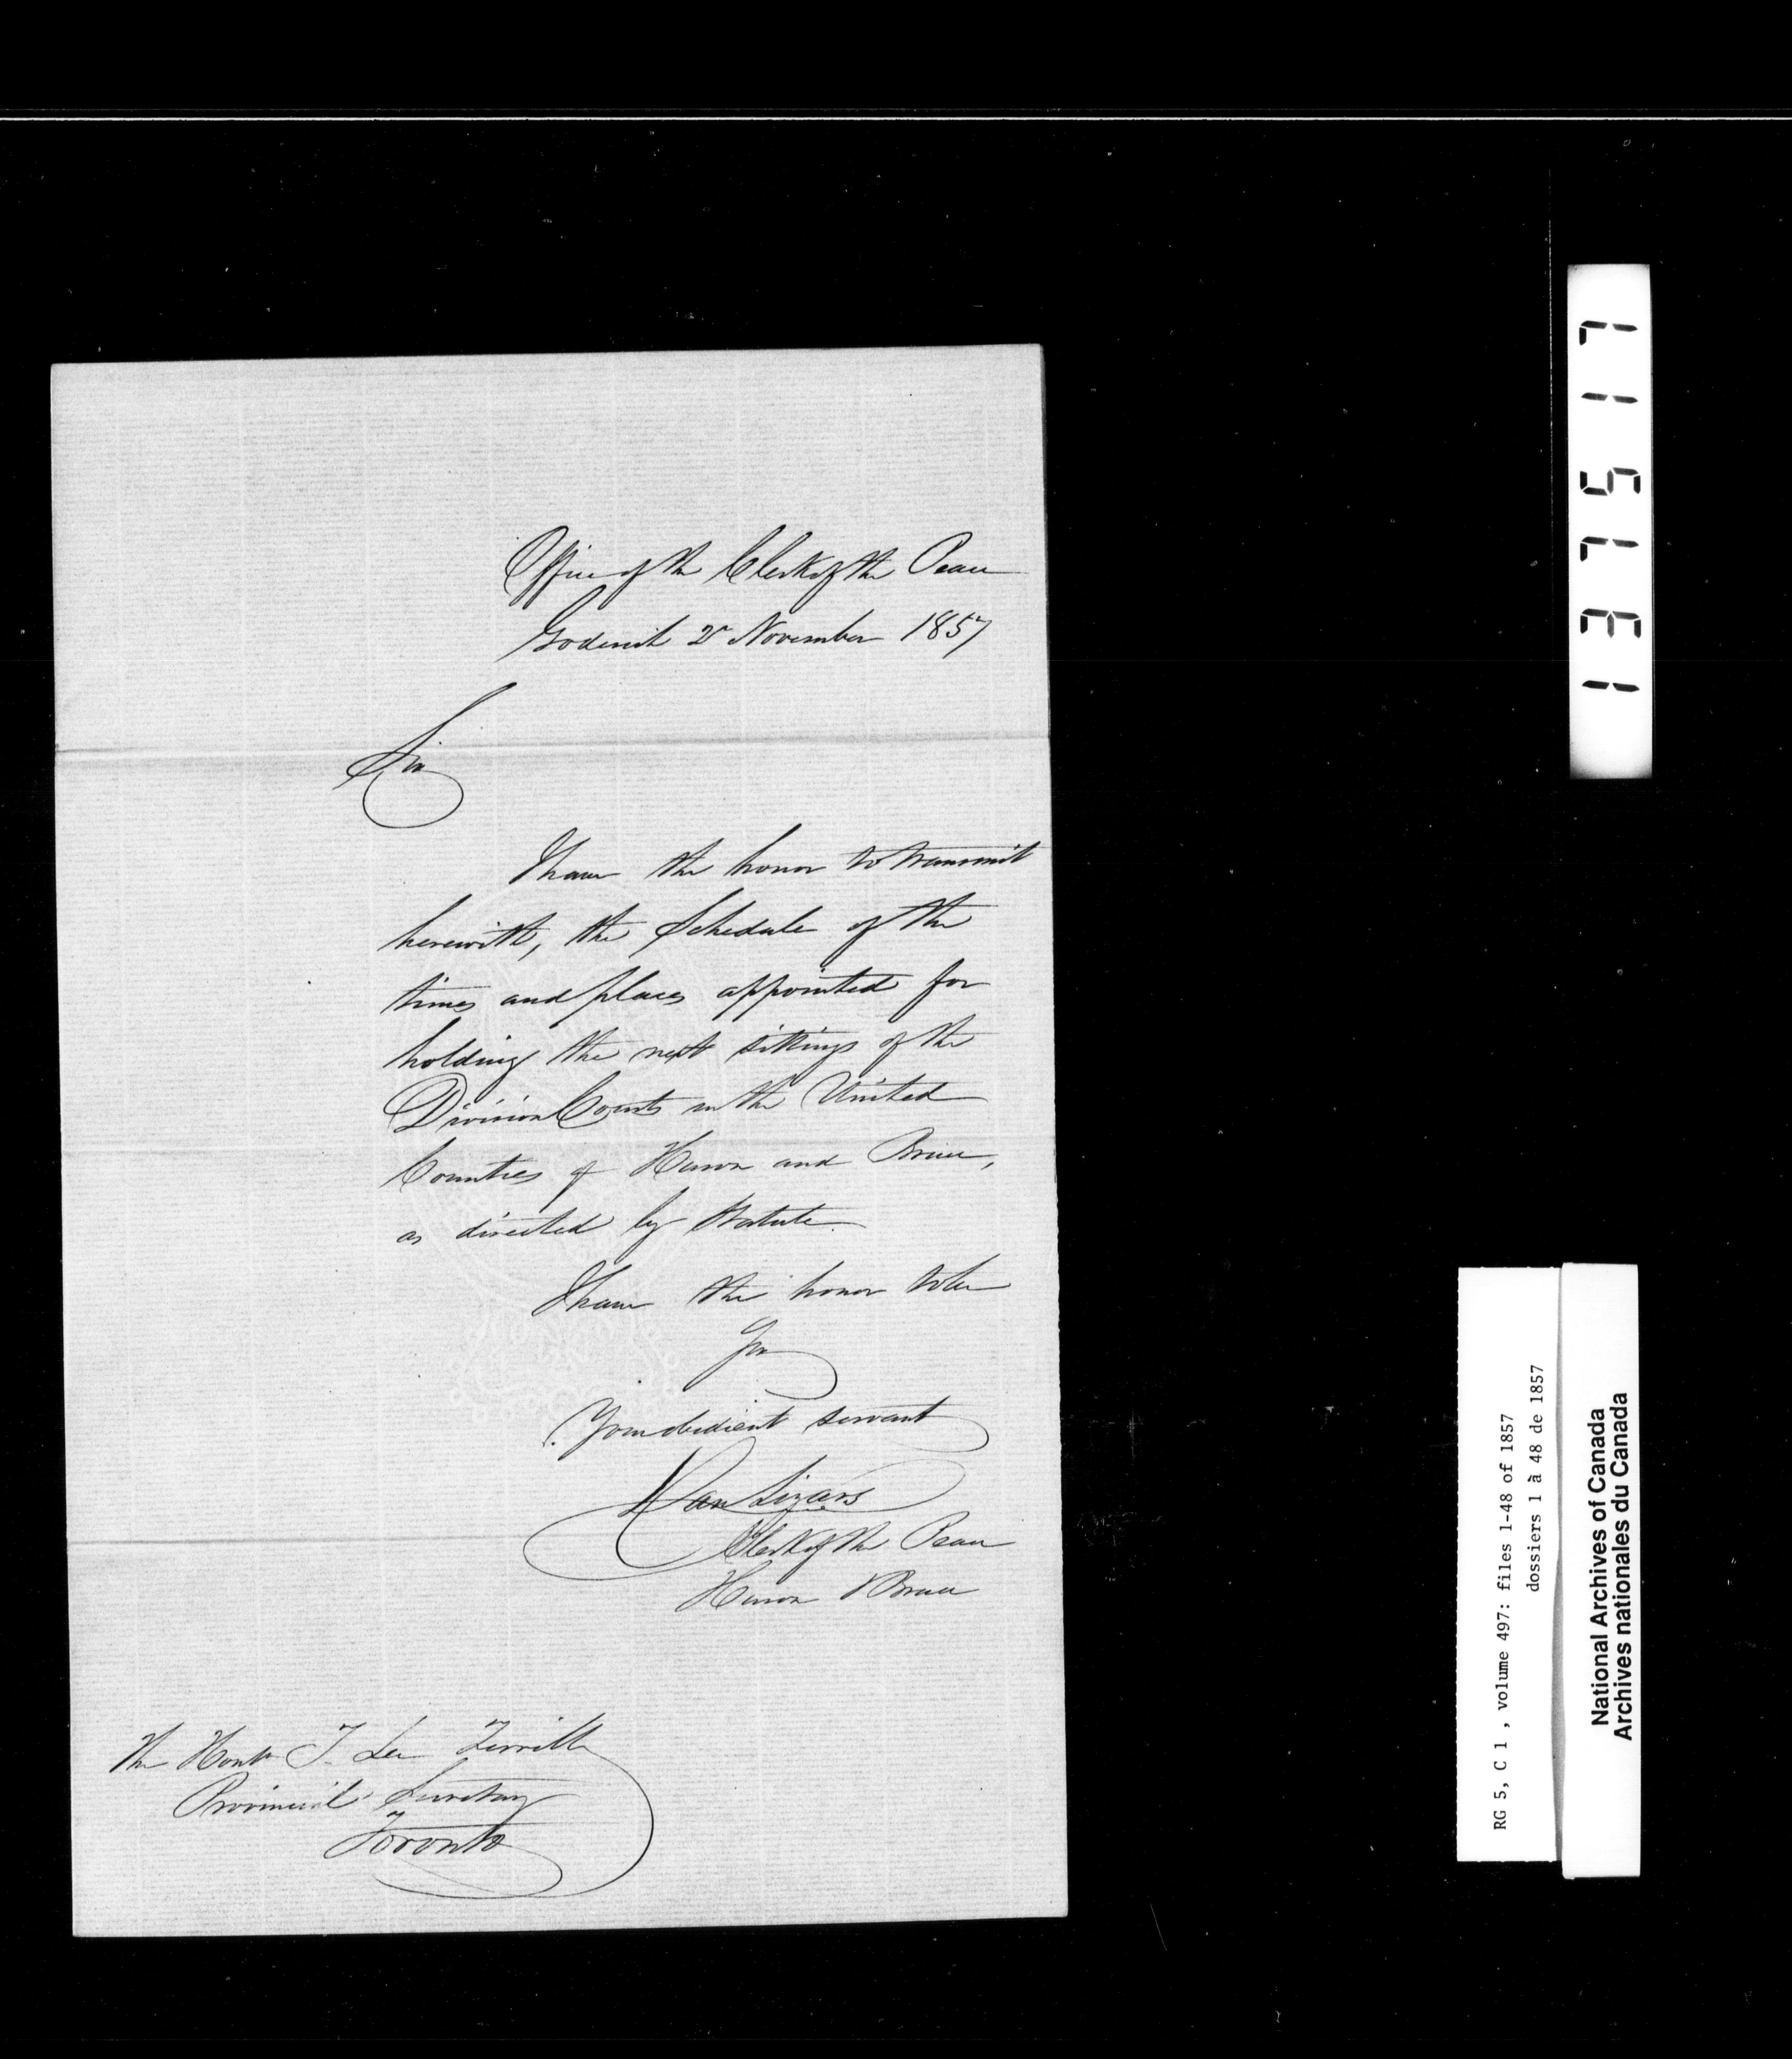 Office of the Clerk of the Peace
Goderich 2d November 1857
Sir
I have the honor to transmit
herewith, the Schedule of the
times and places appointed for
holding the next sittings of the
Division Courts in the United
Counties of Huron and Bruce,
as directed by Statute.
I have the honor to be
Sir
Your obedient servant
Dan Lizars
Clerk of the Peace
Huron & Bruce
The Honble T. Lee Terrill
Provincial Secretary
Toronto
137517
RG 5, C 1 , volume 497: files 1-48 of 1857
dossiers 1 à 48 de 1857
National Archives of Canada
Archives nationales du Canada